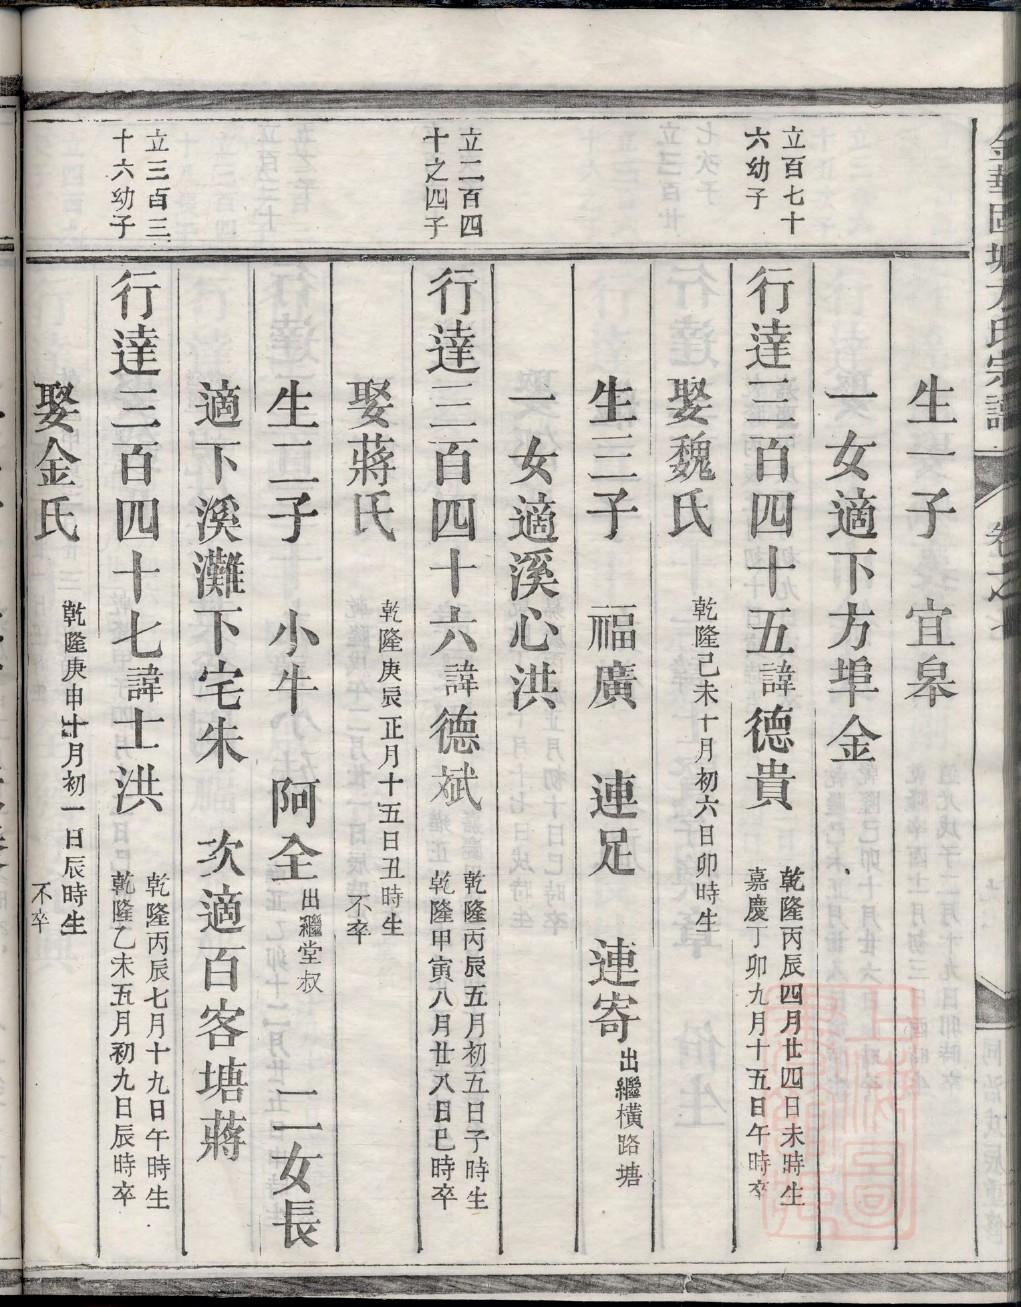 金華固塘方氏宗譜
生一子 宜皋
一女適下方埠金
立百七十
六幼子
行達三百四十五諱德貴
乾隆丙辰四月廿四日未時生
嘉慶丁卯九月十五日午時卒
娶魏氏
乾隆己未十月初六日卯時生
生三子 福廣 連足 連寄
出繼橫路塘
一女適溪心洪
立二百四
十之四子
行達三百四十六諱德斌
乾隆丙辰五月初五日子時生
乾隆甲寅八月廿八日巳時卒
娶蔣氏
乾隆庚辰正月十五日丑時生
不卒
生二子 小牛 阿全
出繼堂叔
二女長
適下溪灘下宅朱 次適百客塘蔣
立三百三
十六幼子
行達三百四十七諱士洪
乾隆丙辰七月十九日午時生
乾隆乙未五月初九日辰時卒
娶金氏
乾隆庚申十月初一日辰時生
不卒